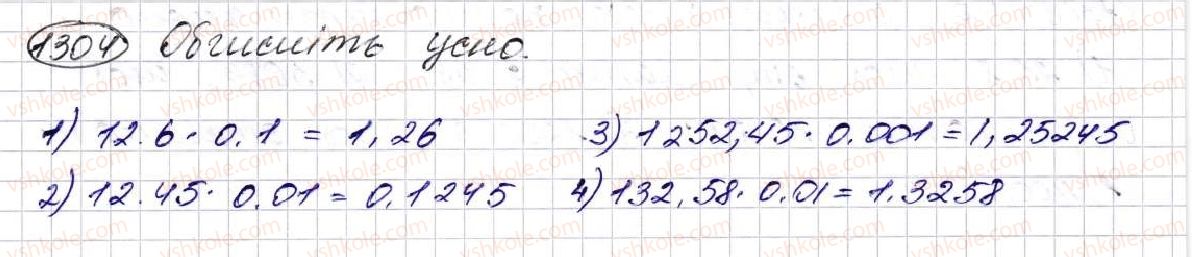 1304 Обчисліть усно.
1) 12.6 · 0.1 = 1,26
2) 12.45 · 0.01 = 0.1245
3) 1252,45 · 0.001 = 1,25245
4) 132,58 · 0.01 = 1.3258